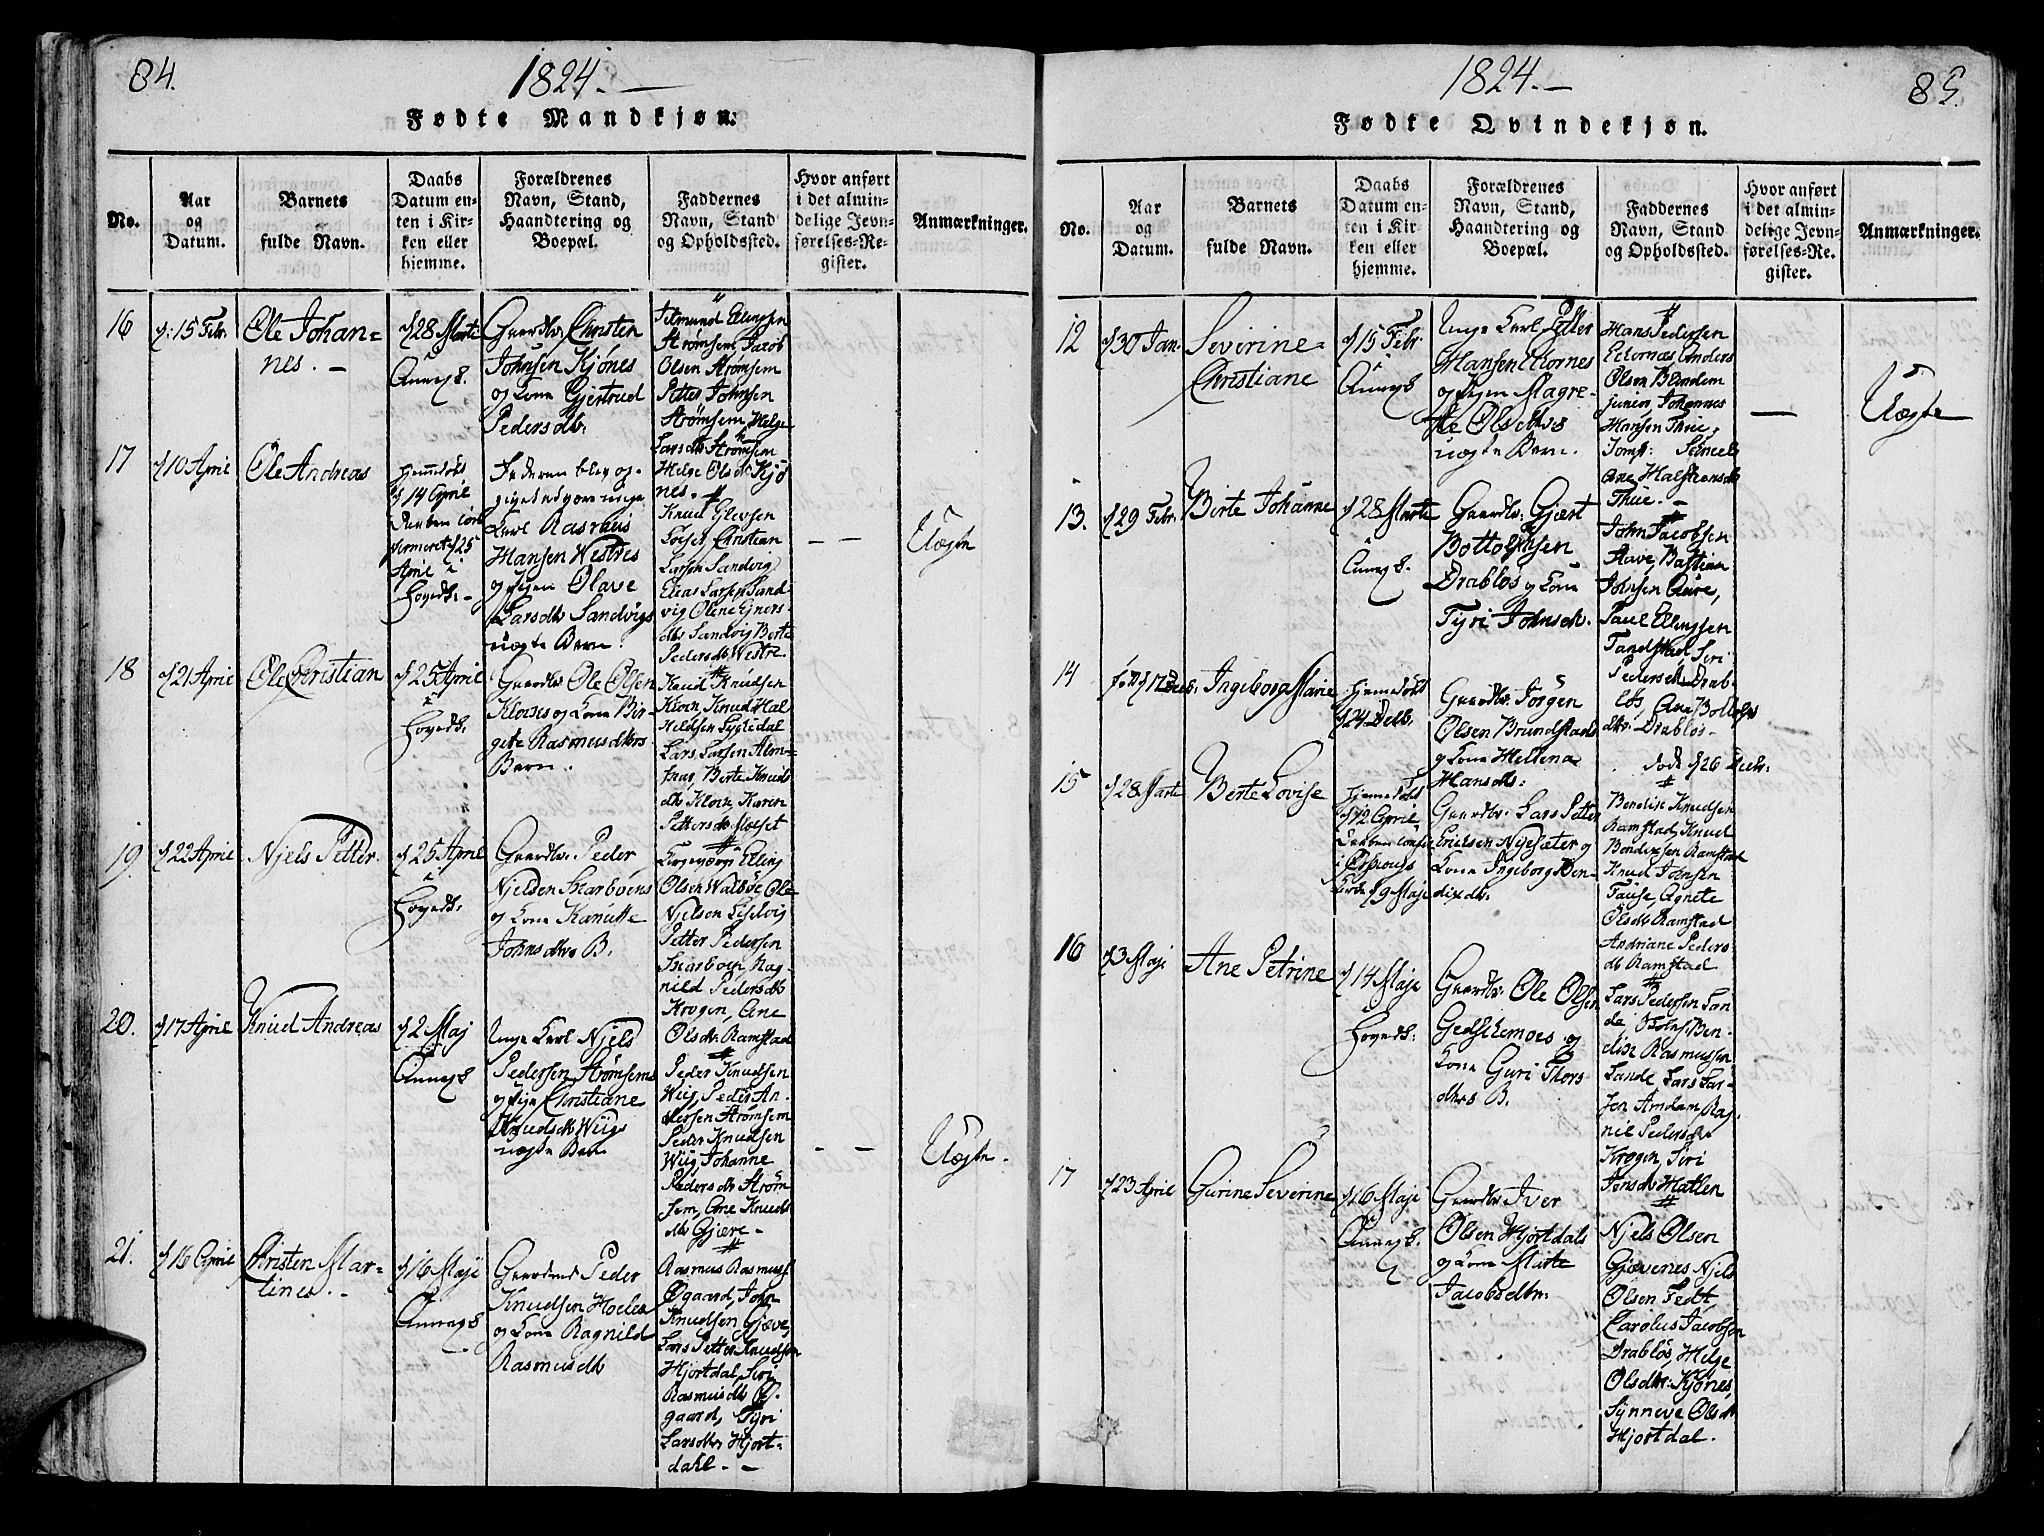 84.
1824.—
Fødte Mandkjøn.
No.
Aar
og
Datum.
Barnets
fulde Navn.
Daabs
Datum en-
ten i Kir-
ken eller
hjemme.
Forældrenes
Navn, Stand,
Haandtering og
Boepæl.
Faddernes
Navn, Stand
og Opholdssted.
Hvor anført
i det almin-
delige Jevn-
førelses-Re-
gister.
Anmærkninger.
16
15 Febr.
Ole Johan-
nes. —
28 Marti
Gaardbr. Christen
Johnsen Kjønes
og Kone Gjertrud
Pedersdtr.
Ellingsen
Strømsem, Jacob
Olsen Strømsem
Petter Johnsen
Strømsem, Helge
Larsdtr Strømsem
Helge Olsdtr Kjø
nes.
17
10 April
Ole Andreas
hjemmedøbt
14 April
25
April i
Hoveds.
Faderen blev op-
givet at være unge
Karl Rasmus
Hansen Westres
og Pigen Olave
Larsdtr Sandvigs
uægte Barn.
Knud
Christian
Larsen Sandvig
Elias Larsen Sand-
vig Oline
dtr Sandvig Berte
Pedersdtr Westre.
— —
Uægte
18
21 April
Ole Christian
25 April
i
Hoveds.
Gaardbr Ole Olsen
og Kone Bir-
gete Rasmusdtrs
Barn.
Knud Knudsen
Knud Hal
Lars Larsen Alm-
Berte Knuds
dtr Karen
Pettersdtr
19
22 April
Njels Petter.
25 April
i
Hoveds.
Gaardbr. Peder
Njelsen Skarboens
og Kone Kanutte
Johnsdtrs B.
Elling
Olsen Walbøe Ole
Njelsen
Petter Pedersen
Skarboen, Rag-
nild Pedersdtr
Krogen, Ane
Olsdtr Ramstad
20.
17 April
Knud Andreas
2 Maj
Unge Karl Njels
Pedersen Strømsems
og Pige Christiane
Knudsdtr Wiigs
uægte Barn
Peder Knudsen
Wiig, Peder An-
dersen Strømsem
Peder Knudsen
Wiig Johanne
Pedersdtr Strøm
sem, Ane Knuds
dtr Gjære —
- -
Uægte.
21.
16 April
Christen Mar-
tines. —
16 Maji
Gaardmd Peder
Knudsen
og Kone Ragnild
Rasmusdtr
Rasmus Rasmuss.
Øgaard, John
Knudsen Gjæve,
Lars Petter Knudsen
Hjortdal, Siri
Rasmusdtr Ø-
gaard, Tyri
Larsdtr Hjort-
dahl. — —
1824.—
85.
Fødte Qvindekjøn.
No.
Aar
og
Datum.
Barnets
fulde Navn.
Daabs
Datum en-
ten i Kir-
ken eller
hjemme.
Forældrenes
Navn, Stand,
Haandtering og
Boepæl.
Faddernes
Navn, Stand
og Opholdssted.
Hvor anført
i det almin-
delige Jevn-
førelses-Re-
gister.
Anmærkninger.
12
30 Jan.
Severine
Christiane
15 Febr.
Unge Karl Petter
Hansen
og Pigen Magre-
te Olsdtrs
uægte Barn.
Hans Pedersen
Anders
Olsen Blindem
junior Johannes
Hansen Thue,
Jomf:
Ane Halstensdtr
Thue. —
—
Uægte
13.
29 Febr.
Berte Johanne
28 Marte
Gaardbr. Gjært
Bottolphsen
Drabløs og Kone
Tyri Johnsdtr.
John Jacobsen
Aave, Bastian
Johnsen Aure,
Paul Ellingsen
Tandstad Siri
Pedersdtr Drab-
løs, Ane
dtr. Drabløs —
14
født 17 Decb.
Ingeborg Marie
hjemmedøbt
24 Decb.
Gaardbr. Jørgen
Olsen Brundstads
og Kone Hellena
Hansdtr:
døde 26 Decbr.
15
28 Marte
Berte Lovise
hjemmedøbt
12 April
i Ørskougs
Kirke 9 Maji
Gaardbr. Lars Petter
Ericksen Nysæter og
Kone Ingeborg Ben-
dixdtr.
Bendix Knudsen
Ramstad, Knud
Bendixsen Ramstad
Knud Johnsen
Fause, Agnete
Olsdtr Ramstad
Andriane Peders
dtr Ramstad
16
3 Maji
Ane Petrine
14 Maji
Hoveds:
Gaardbr. Ole Olsen
Gedschemoes og
Kone Guri Thors-
dtrs B.
Lars Pedersen Lan-
de, Ben-
dix Rasmussen
Lande, Lars Lar-
sen Amdam Rag-
nil Pedersdtr
Krogen, Siri
Jensdtr Hatlen
17
23 April
Gurine Severine
16 Maji
Gaardbr. Iver
Olsen Hjortdals
og Kone Marte
Jacobsdtr:
Njels Olsen
Gjævenes Njels
Olsen Tedt,
Carolus Jacobsen
Drabløs, Helge
Olsdtr: Kjønes,
Synneve Olsdtr
Hjortdal.